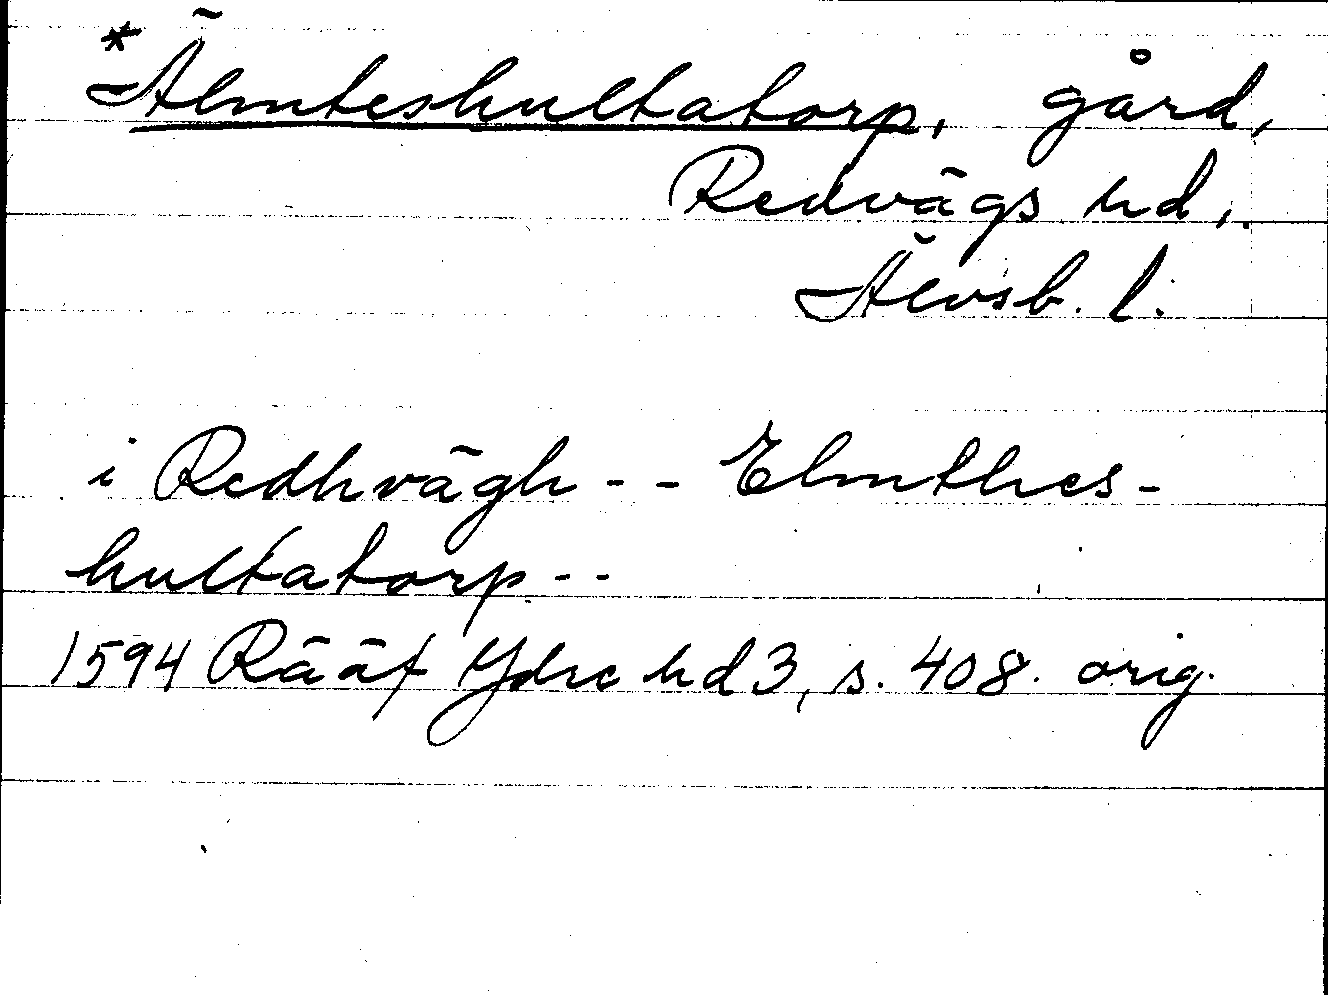 *Älmteshultatorp, gård,
Redvägs hd,
Älvsb. l.
i Redhvägh - - Elmthes-
hultatorp - -
1594 Rääf Ydre hd 3, s. 408. orig.